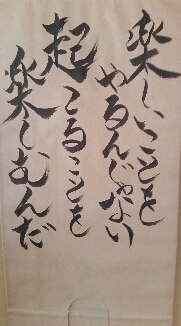 楽しいことを
やるんじゃない
起こることを
楽しむんだ